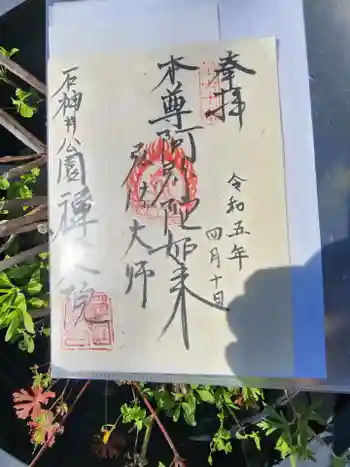 奉拝
令和五年
四月十日
本尊阿弥陀如来
弘法大師
石神井公園 禅定院